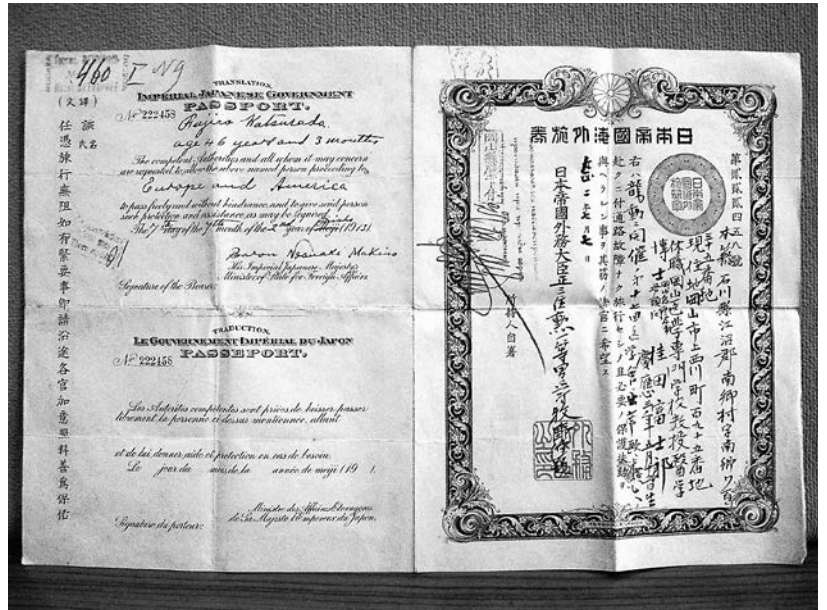 460 I N9
TRANSLATION.
IMPERIAL JAPANESE GOVERNMENT
PASSPORT.
No 222458
Fujiro Katsurada.
age 46 years and 3 months
The competent Authorities and all whom it may concern
are requested to allow the above named person proceeding to
Europe and America
to pass freely and without hindrance and to give said person
such protection and assistance as may be required.
The 7th day of the 7th month of the 2nd year of Meiji (1913).
Baron Nobuaki Makino
His Imperial Japanese Majesty's
Minister of State for Foreign Affairs.
Signature of the Bearer:
TRADUCTION.
LE GOUVERNEMENT IMPÉRIAL DU JAPON
PASSEPORT.
No 222458
Les Autorités compétentes sont priées de laisser passer
librement la personne ci-dessus mentionnée, allant
et de lui donner aide et protection en cas de besoin.
Le jour du mois de la année de meiji (19 ).
Ministre des Affaires Étrangères
de Sa Majesté l'Empereur du Japon.
Signature du porteur:
(文譯)
該氏名
任憑旅行無阻如有緊要事卽請沿途各官加意照料善爲保佑
日本帝國海外旅券
第貳貳貳四五八號
本籍 石川縣江沼郡南郷村字南郷
現住地岡山市上西川町百九十五番地
休職岡山醫學專門學校教授醫學
博士 桂田富士郎
慶應三年五月 生
赴クニ付通路故障ナク旅行セシメ且必要ノ保護扶助ヲ
與ヘラレン事ヲ其筋ノ諸官ニ希望ス
大正二年七月七日
日本帝國外務大臣正三位勲一等男爵牧野伸顯
所持人自署